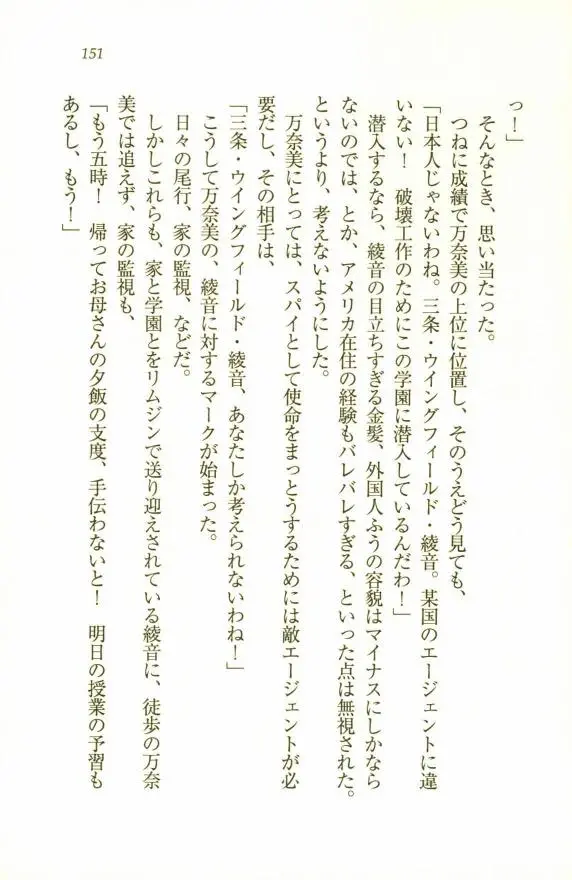 151
っ！」
そんなとき、思い当たった。
つねに成績で万奈美の上位に位置し、そのうえどう見ても、
「日本人じゃないわね。三条・ウイングフィールド・綾音。某国のエージェントに違
いない！　破壊工作のためにこの学園に潜入しているんだわ！」
潜入するなら、綾音の目立ちすぎる金髪、外国人ふうの容貌はマイナスにしかなら
ないのでは、とか、アメリカ在住の経験もバレバレすぎる、といった点は無視された。
というより、考えないようにした。
万奈美にとっては、スパイとして使命をまっとうするためには敵エージェントが必
要だし、その相手は、
「三条・ウイングフィールド・綾音、あなたしか考えられないわね！」
こうして万奈美の、綾音に対するマークが始まった。
日々の尾行、家の監視、などだ。
しかしこれらも、家と学園とをリムジンで送り迎えされている綾音に、徒歩の万奈
美では追えず、家の監視も、
「もう五時！　帰ってお母さんの夕飯の支度、手伝わないと！　明日の授業の予習も
あるし、もう！」